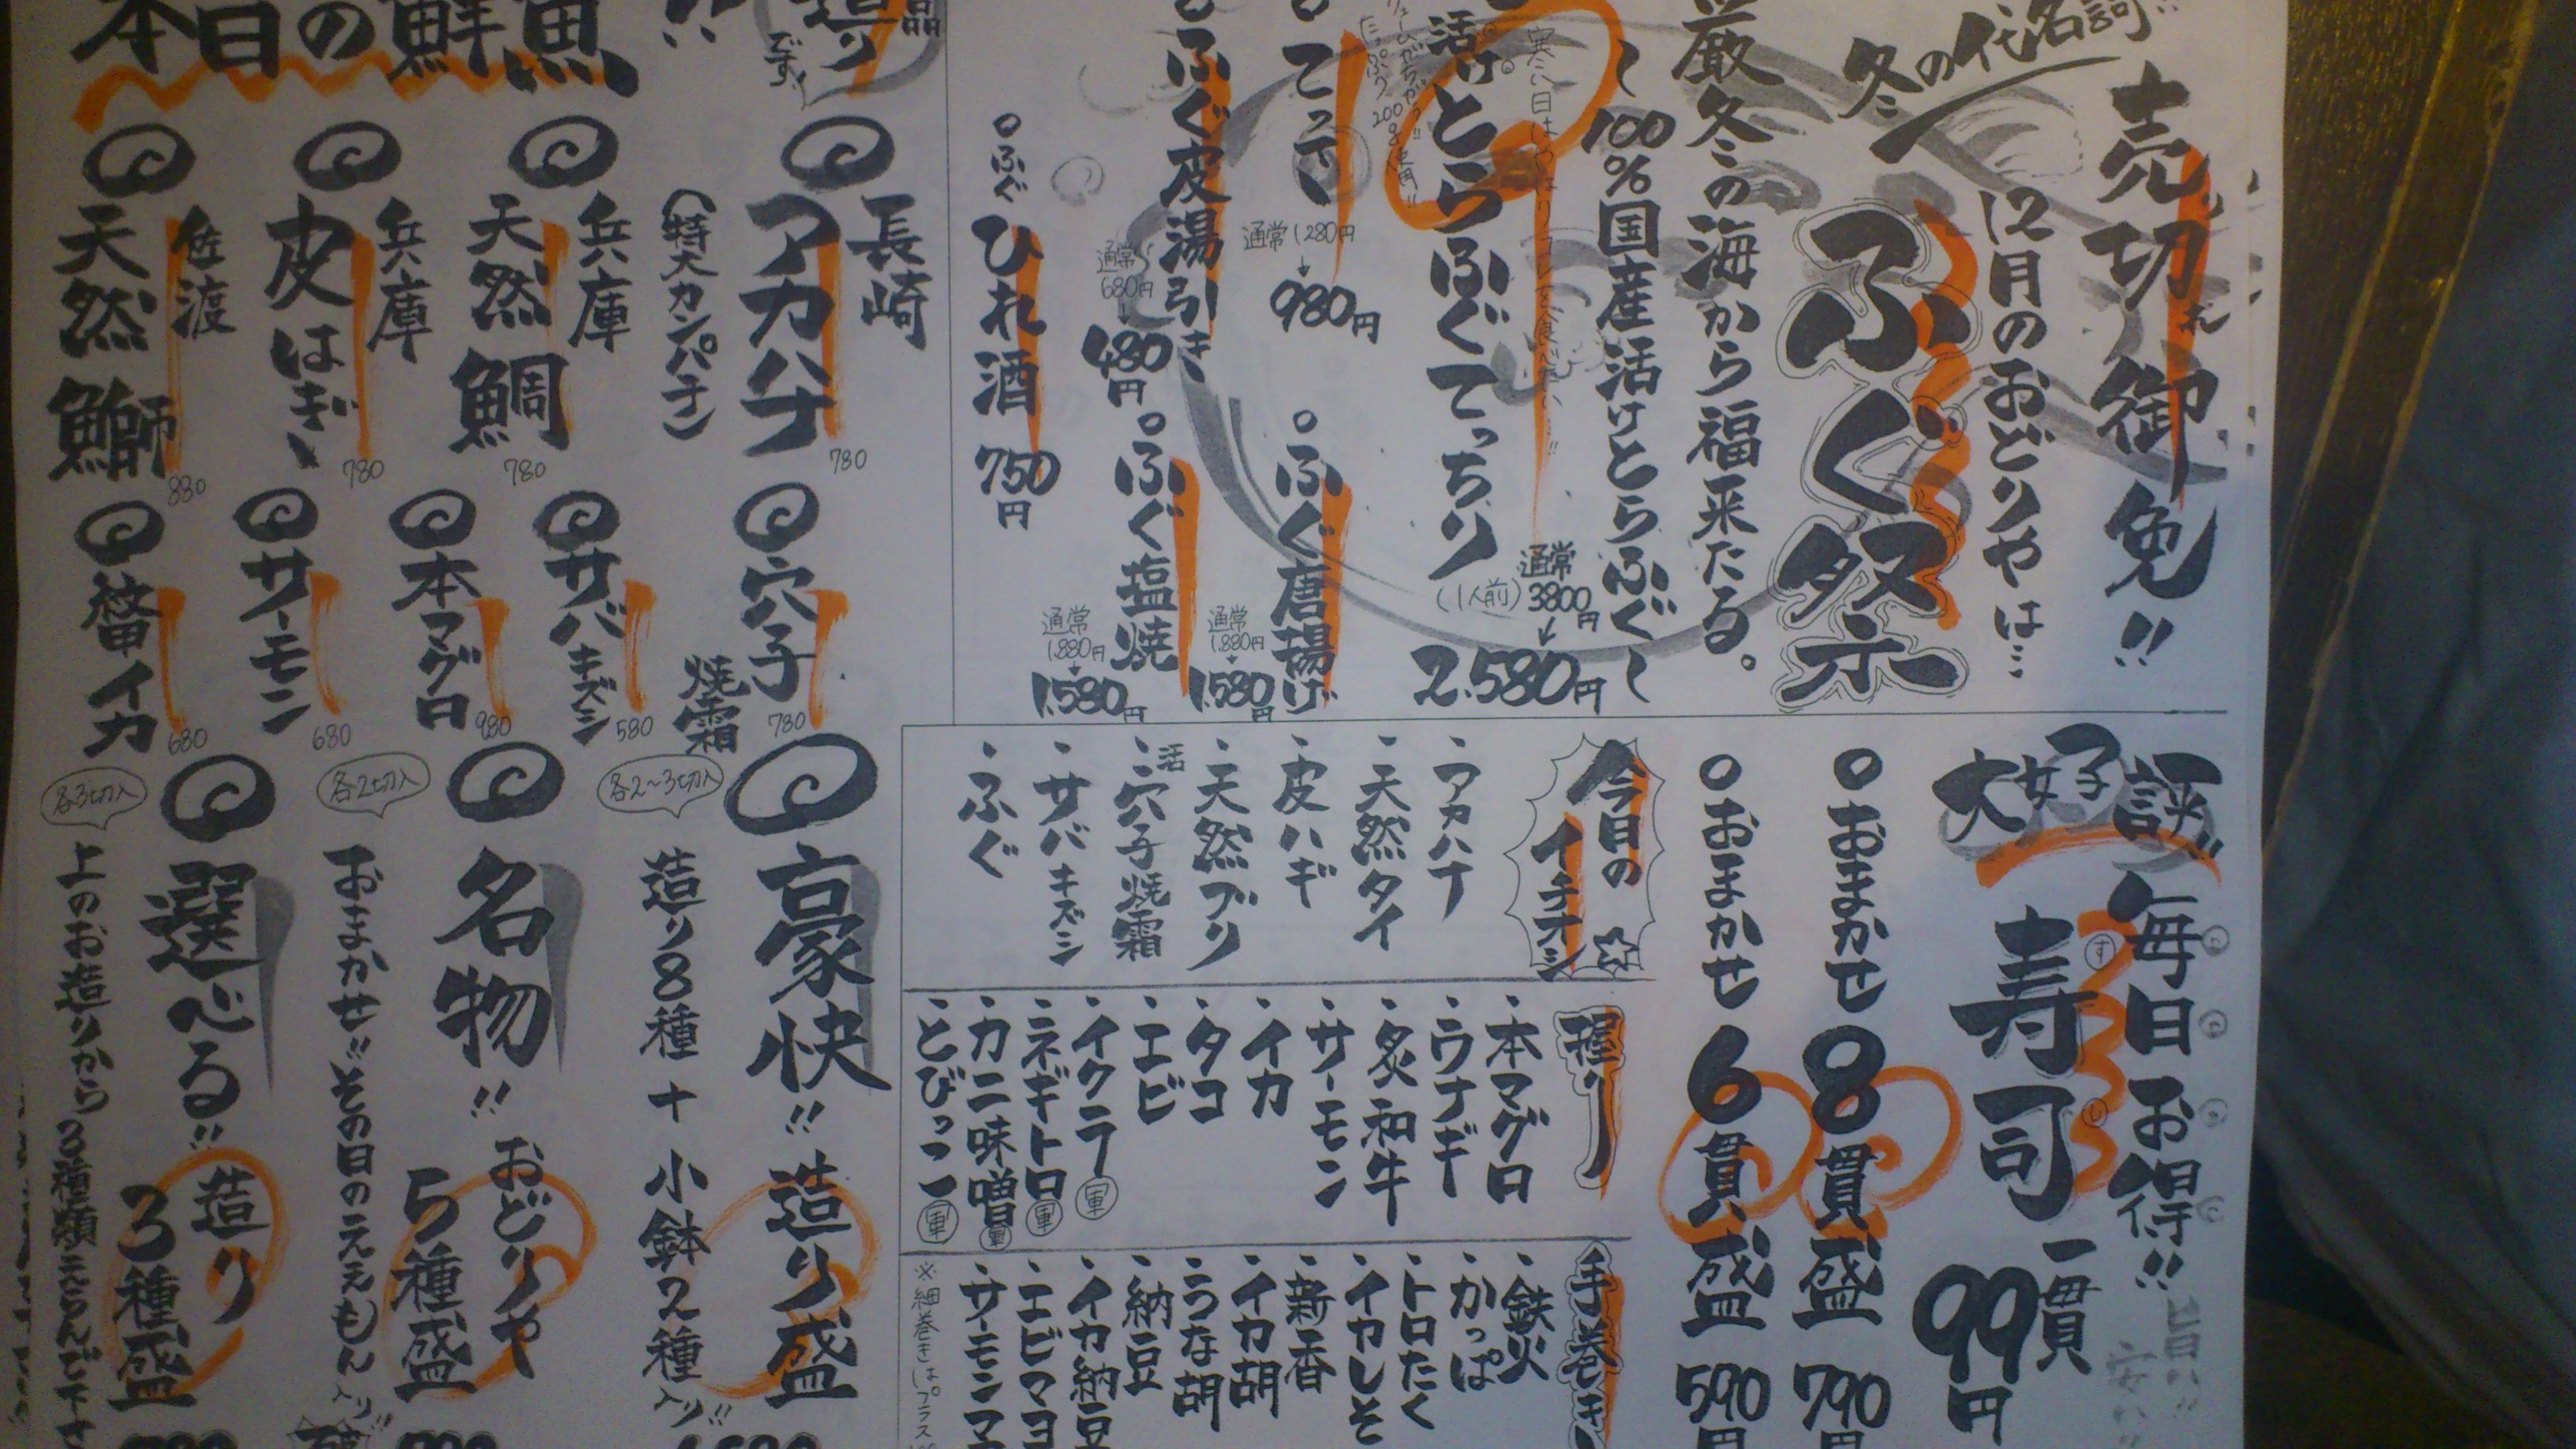 売切れ御免!!
冬の代名詞!!
12月のおどりやは…
ふぐ祭
厳冬の海から福来たる。
〜100%国産活けとらふぐ〜
活けとらふぐてっちり
(1人前)
通常
3800円
↓
2.580円
てっさ
通常1,280円
↓
980円
ふぐ唐揚げ
通常
1.880円
↓
1.580円
ふぐ皮湯引き
通常
680円
↓
480円
ふぐ塩焼
通常
1.880円
↓
1.580円
ふぐひれ酒 750円
造り
です!
本日の鮮魚
長崎
アカハナ
(特大カンパチ)
780
兵庫
天然鯛
780
兵庫
皮はぎ
780
佐渡
天然鰤
880
穴子
焼霜
780
サバキズシ
580
本マグロ
980
サーモン
680
イカ
680
豪快!! 造り盛
各2〜3切入
造り8種+小鉢2種入り!!
名物!! おどりや
5種盛
各2切入
おまかせ!!その日のええもん入り!!
選べる!! 造り
3種盛
各3切入
上のお造りから3種類えらんで下さ
大好評!!
毎日お得!!
寿司
すし
一貫
99円
おまかせ8貫盛 790円
おまかせ6貫盛 590円
今日の
イチオシ
・アカハナ
・天然タイ
・皮ハギ
・天然ブリ
・活穴子焼霜
・サバキズシ
・ふぐ
握り
・本マグロ
・ウナギ
・炙和牛
・サーモン
・イカ
・タコ
・エビ
・イクラ 軍
・ネギトロ 軍
・カニ味噌 軍
・とびっこ 軍
手巻き
・鉄火
・かっぱ
・トロたく
・イカしそ
・新香
・イカ胡
・うな胡
・納豆
・イカ納豆
・エビマヨ
・サーモンマ
※細巻きはプラス